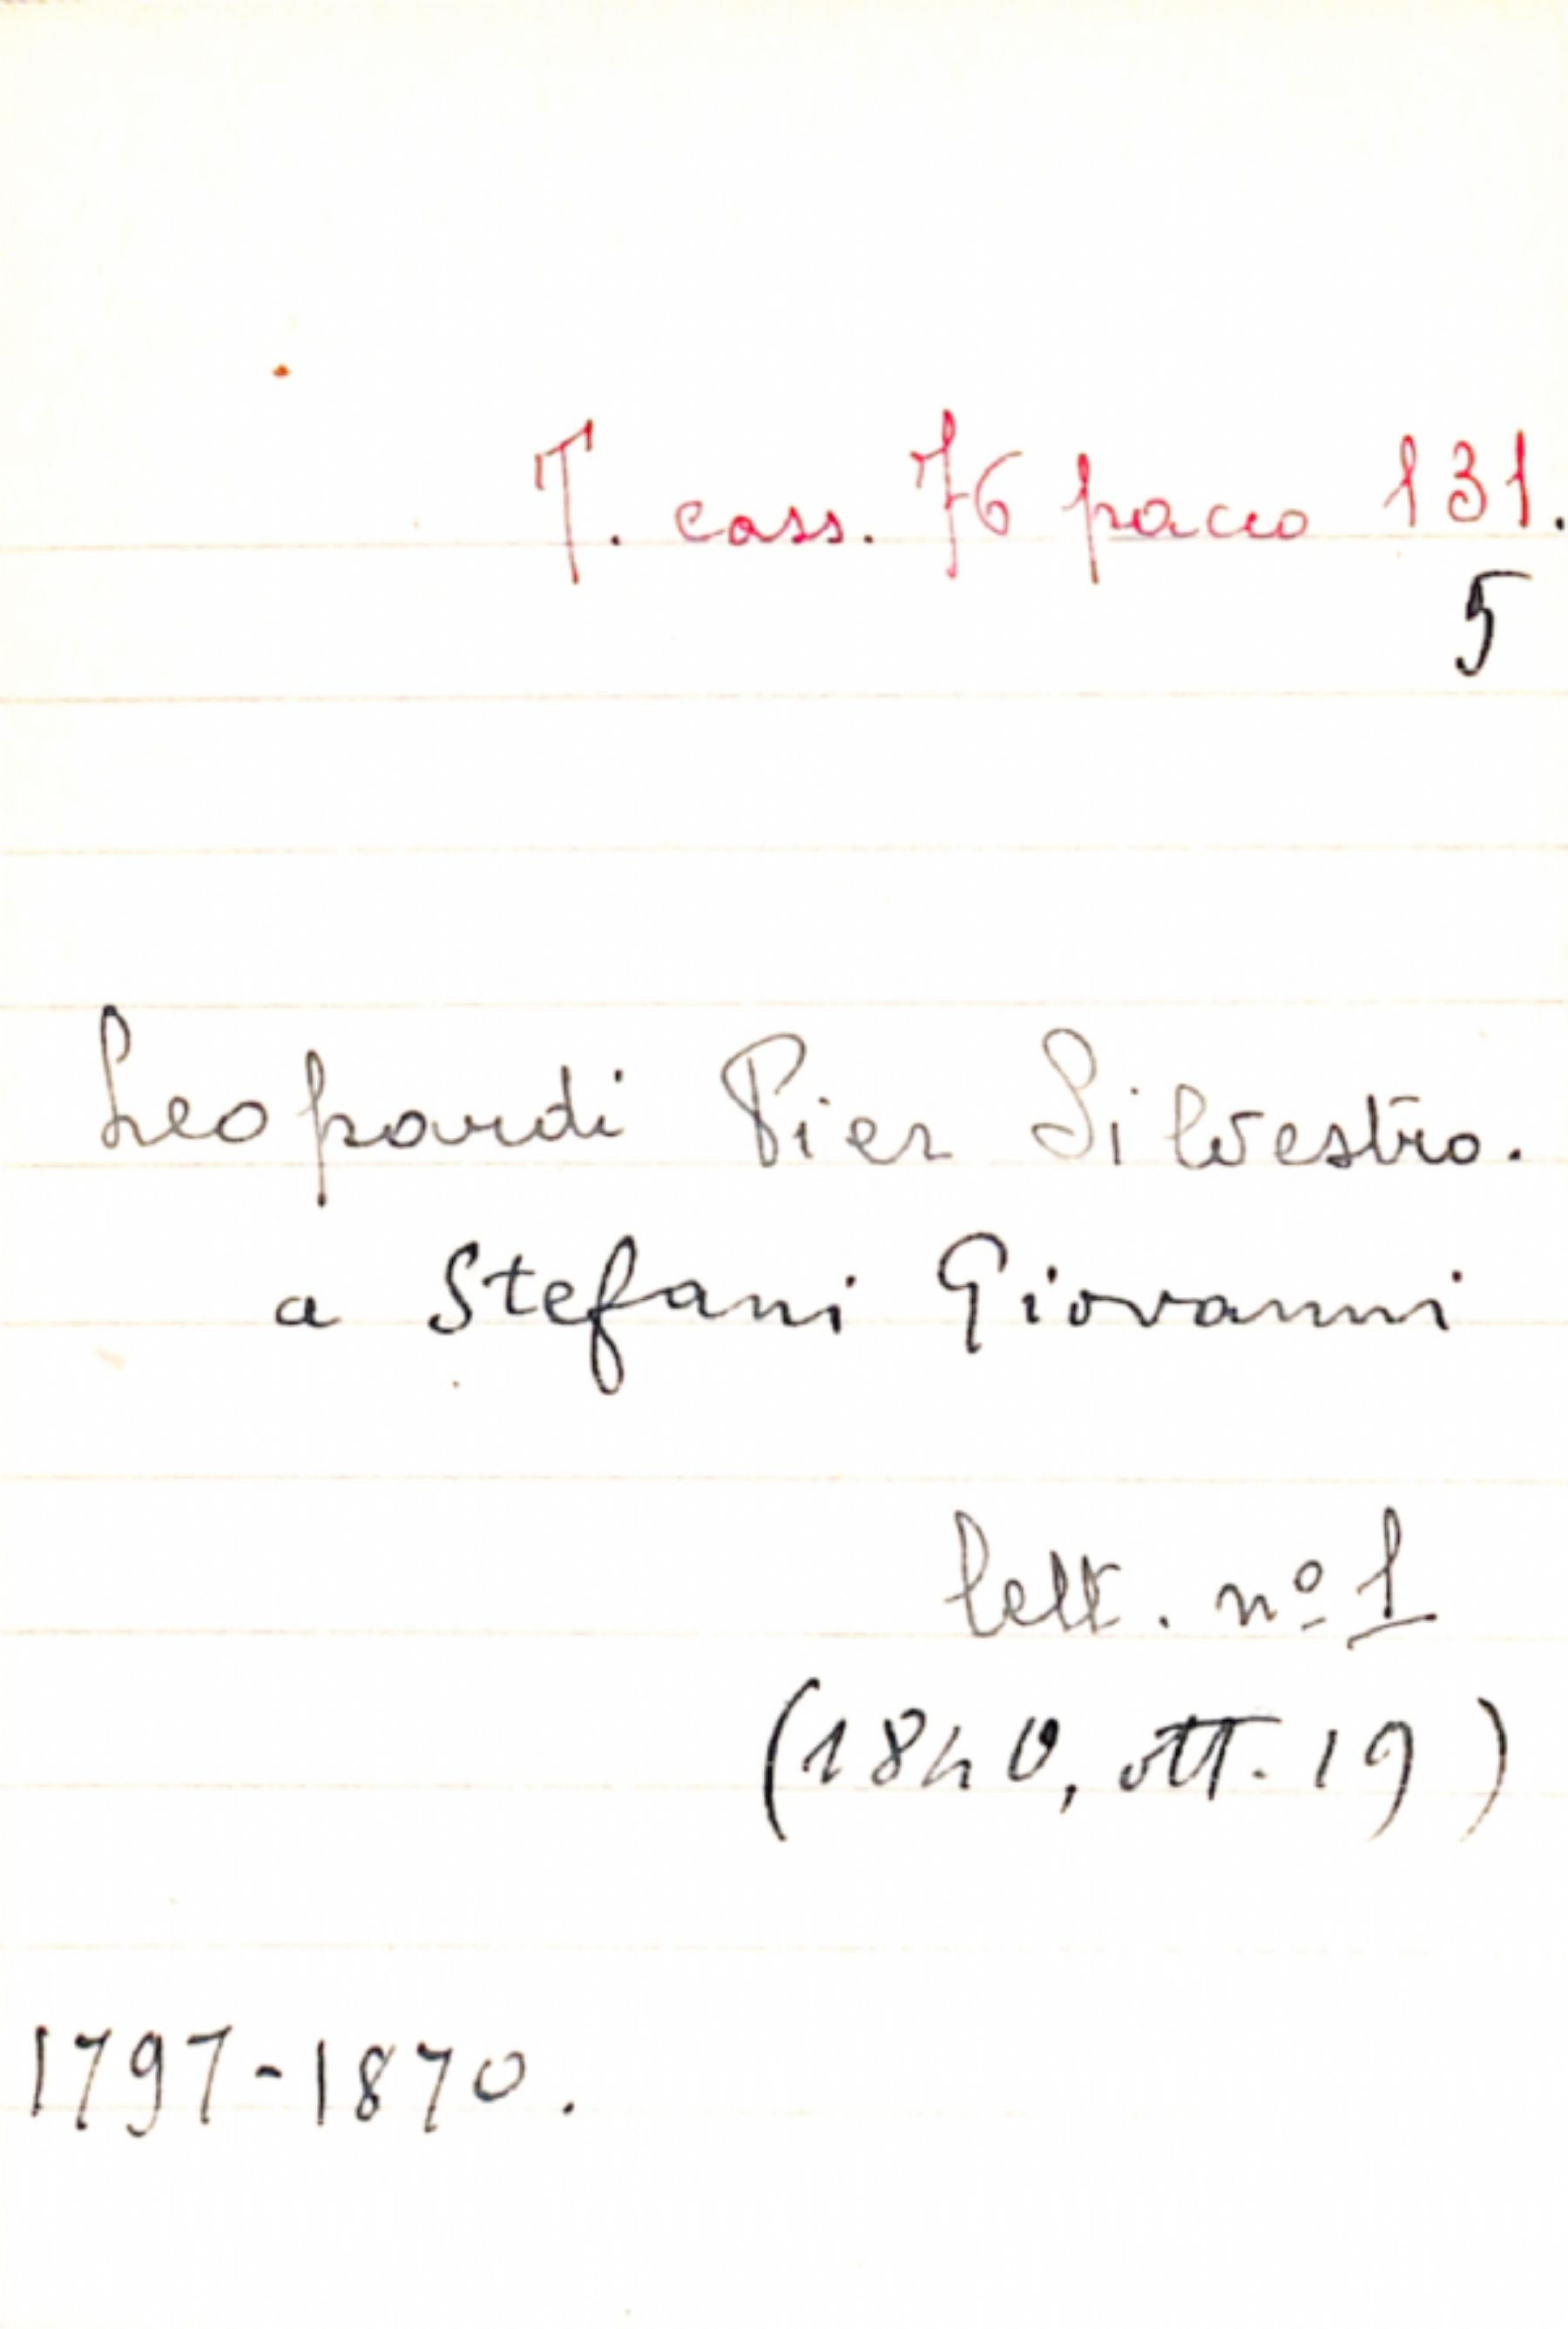 T. cass. 76 pacco 131.
5
Leopardi Pier Silvestro.
a Stefani Giovanni
lett. nº 1
(1840, ott. 19)
1797-1870.